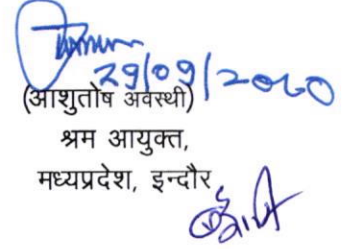 29/09/2020
(आशुतोष अवस्थी)
श्रम आयुक्त,
मध्यप्रदेश, इन्दौर